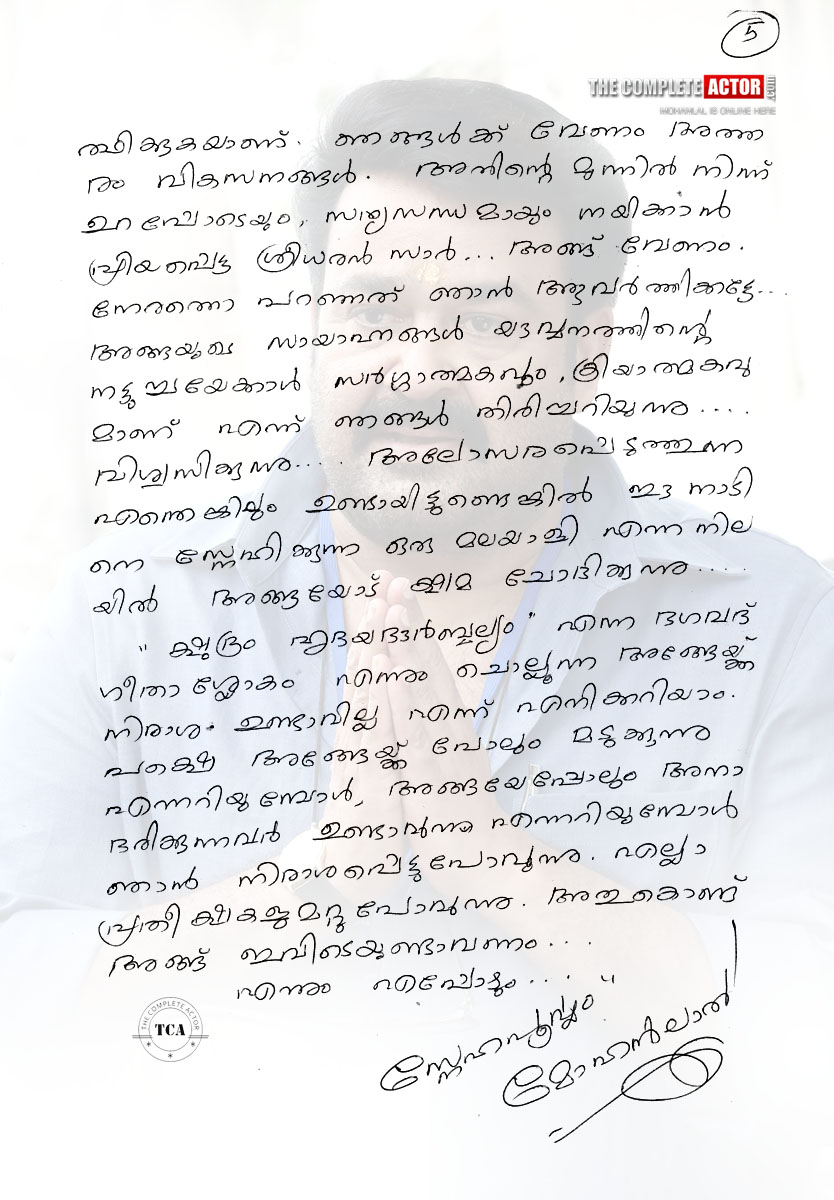 5
THE COMPLETE ACTOR .COM
MOHANLAL IS ONLINE HERE
ത്ഥിക്കുകയാണ്. ഞങ്ങൾക്ക് വേണം അത്ത
രം വികസനങ്ങൾ. അതിന്റെ മുന്നിൽ നിന്ന്
ഉറപ്പോടെയും, സത്യസന്ധമായും നയിക്കാൻ
പ്രിയപ്പെട്ട ശ്രീധരൻ സാർ... അങ്ങ് വേണം.
നേരത്തെ പറഞ്ഞത് ഞാൻ ആവർത്തിക്കട്ടെ...
അങ്ങയുടെ സായാഹ്നങ്ങൾ യൗവ്വനത്തിന്റെ
നട്ടുച്ചയേക്കാൾ സർഗ്ഗാത്മകവും, ക്രിയാത്മകവു
മാണ് എന്ന് ഞങ്ങൾ തിരിച്ചറിയുന്നു....
വിശ്വസിക്കുന്നു.... അലോസരപ്പെടുത്തുന്ന
എന്തെങ്കിലും ഉണ്ടായിട്ടുണ്ടെങ്കിൽ ഈ നാടി
നെ സ്നേഹിക്കുന്ന ഒരു മലയാളി എന്ന നില
യിൽ അങ്ങയോട് ക്ഷമ ചോദിക്കുന്നു....
"ക്ഷുദ്രം ഹൃദയദൗർബ്ബല്യം" എന്ന ഭഗവദ്
ഗീതാ ശ്ലോകം എന്നും ചൊല്ലുന്ന അങ്ങേയ്ക്ക്
നിരാശ ഉണ്ടാവില്ല എന്ന് എനിക്കറിയാം.
പക്ഷെ അങ്ങേയ്ക്ക് പോലും മടുക്കുന്നു
എന്നറിയുമ്പോൾ, അങ്ങയേപ്പോലും അനാ
ദരിക്കുന്നവർ ഉണ്ടാവുന്നു എന്നറിയുമ്പോൾ
ഞാൻ നിരാശപ്പെട്ടുപോവുന്നു. എല്ലാ
പ്രതീക്ഷകളുമറ്റുപോവുന്നു. അതുകൊണ്ട്
അങ്ങ് ഇവിടെയുണ്ടാവണം...
എന്നും എപ്പോഴും...."
സ്നേഹപൂർവ്വം
മോഹൻലാൽ
THE COMPLETE ACTOR
TCA